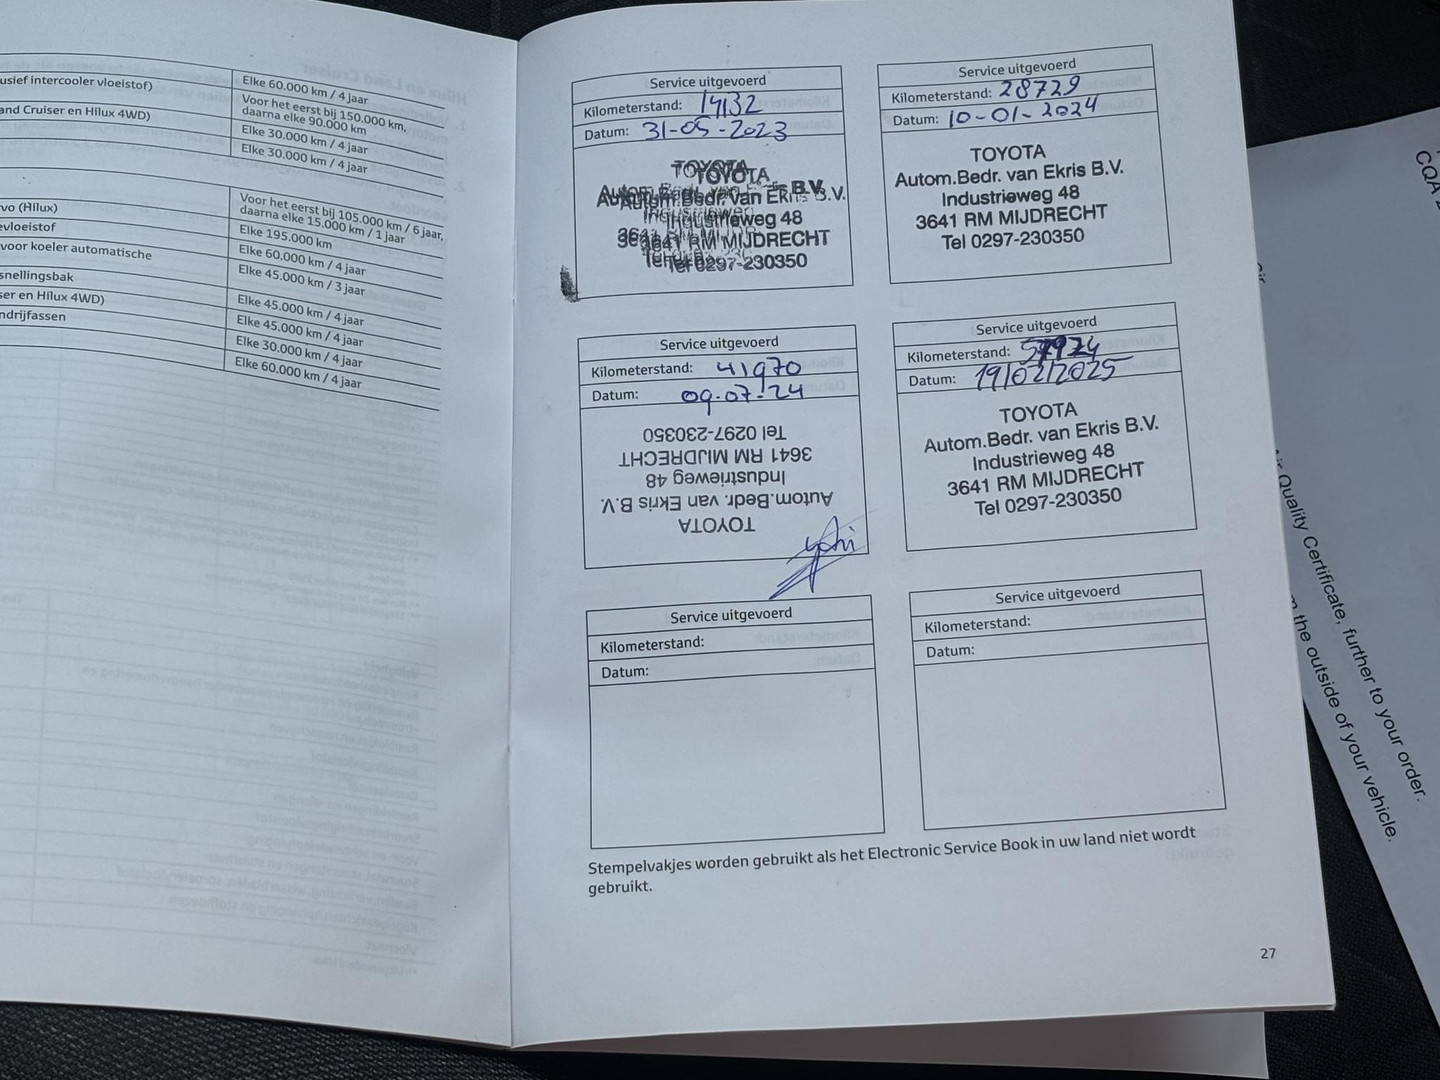 usief intercooler vloeistof)
Elke 60.000 km / 4 jaar
and Cruiser en Hilux 4WD)
Voor het eerst bij 150.000 km,
daarna elke 90.000 km
Elke 30.000 km / 4 jaar
Elke 30.000 km / 4 jaar
rvo (Hilux)
Voor het eerst bij 105.000 km / 6 jaar,
daarna elke 15.000 km / 1 jaar
evloeistof
Elke 195.000 km
voor koeler automatische
Elke 60.000 km / 4 jaar
snellingsbak
Elke 45.000 km / 3 jaar
ser en Hilux 4WD)
Elke 45.000 km / 4 jaar
ndrijfassen
Elke 45.000 km / 4 jaar
Elke 30.000 km / 4 jaar
Elke 60.000 km / 4 jaar
Service uitgevoerd
Kilometerstand: 14132
Datum: 31-05-2023
TOYOTA
Autom.Bedr. van Ekris B.V.
Industrieweg 48
3641 RM MIJDRECHT
Tel 0297-230350
Service uitgevoerd
Kilometerstand: 28729
Datum: 10-01-2024
TOYOTA
Autom.Bedr. van Ekris B.V.
Industrieweg 48
3641 RM MIJDRECHT
Tel 0297-230350
Service uitgevoerd
Kilometerstand: 41970
Datum: 09-07-24
TOYOTA
Autom.Bedr. van Ekris B.V.
Industrieweg 48
3641 RM MIJDRECHT
Tel 0297-230350
Service uitgevoerd
Kilometerstand:
Datum: 19/02/2025
TOYOTA
Autom.Bedr. van Ekris B.V.
Industrieweg 48
3641 RM MIJDRECHT
Tel 0297-230350
Service uitgevoerd
Kilometerstand:
Datum:
Service uitgevoerd
Kilometerstand:
Datum:
Stempelvakjes worden gebruikt als het Electronic Service Book in uw land niet wordt
gebruikt.
27
Air Quality Certificate, further to your order.
the outside of your vehicle.